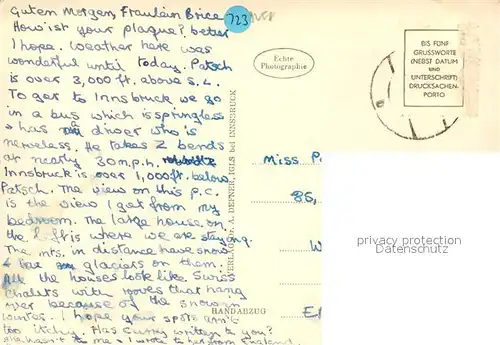 Guten Morgen, Fräulein Brice
How ist your plague? better
I hope. Weather here was
wonderful until today. Patsch
is over 3,000 ft. above s.l.
To get to Innsbruck we go
in a bus which is springless
& has a driver who is
nerveless. He takes Z bends
at neatly 30 m.p.h.
Innsbruck is over 1,000 ft. below
Patsch. The view on this p.c.
is the view I get from my
bedroom. The large house on
the left is where we are staying.
The mts. in distance have snow
& glaciers on them.
All the houses look like Swiss
chalets with roves that hang
over because of the snow in
winter. I hope your spots arn't
too itchy. Has Curry written to you?
She hasn't to me & I wrote to her from England.
723
Echte
Photographie
BIS FÜNF
GRUSSWORTE
(NEBST DATUM
UND
UNTERSCHRIFT)
DRUCKSACHEN-
PORTO
A. DEFNER, IGLS bei INNSBRUCK
HANDABZUG
Miss P
85,
W
E
privacy protection
Datenschutz